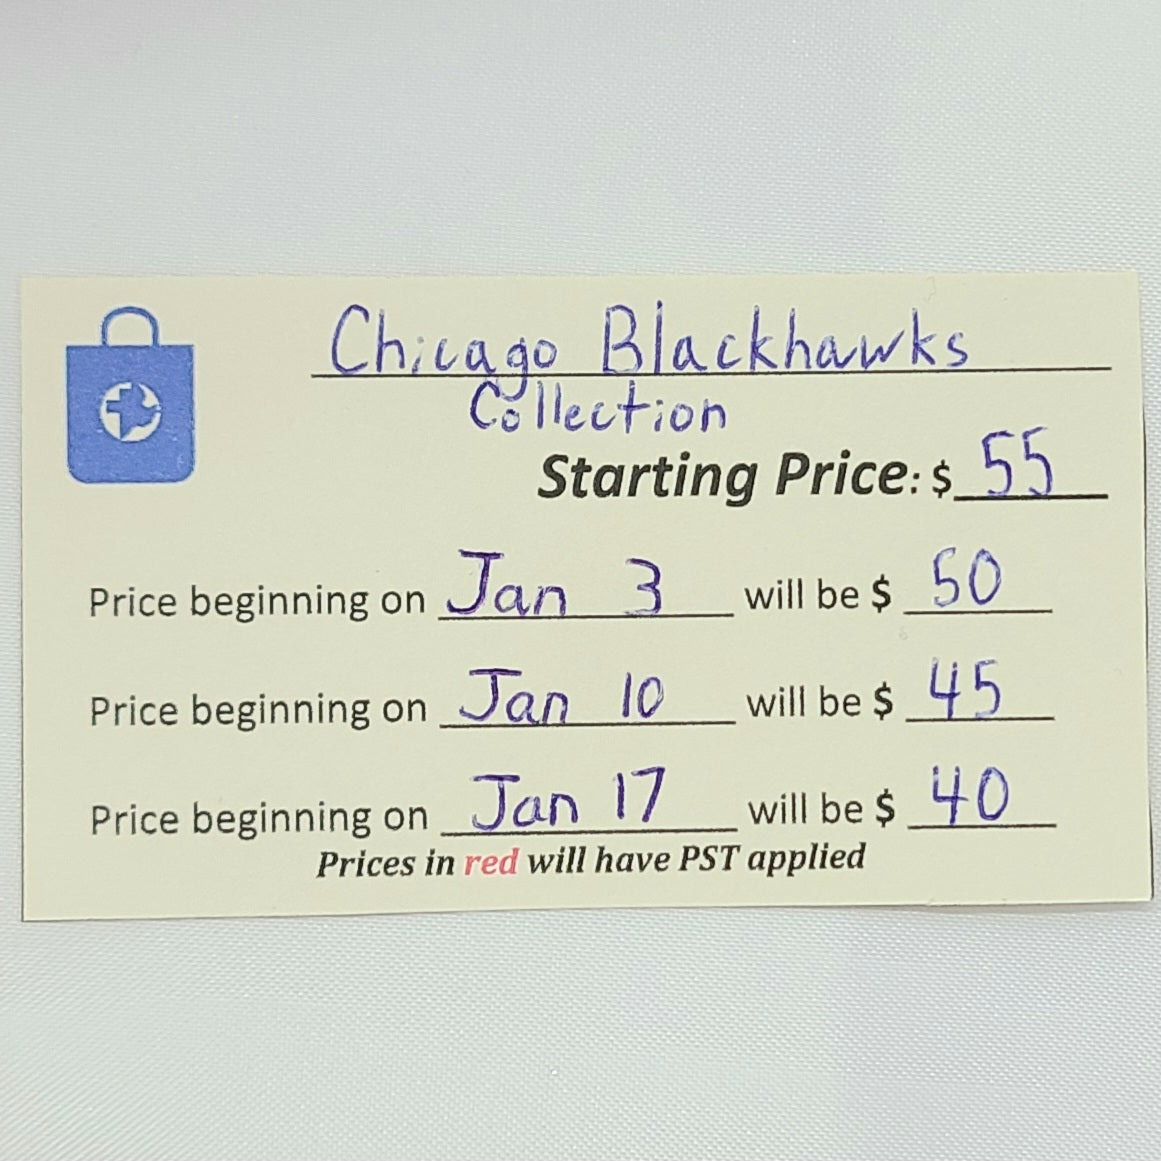 Chicago Blackhawks
Collection
Starting Price: $ 55
Price beginning on Jan 3 will be $ 50
Price beginning on Jan 10 will be $ 45
Price beginning on Jan 17 will be $ 40
Prices in red will have PST applied